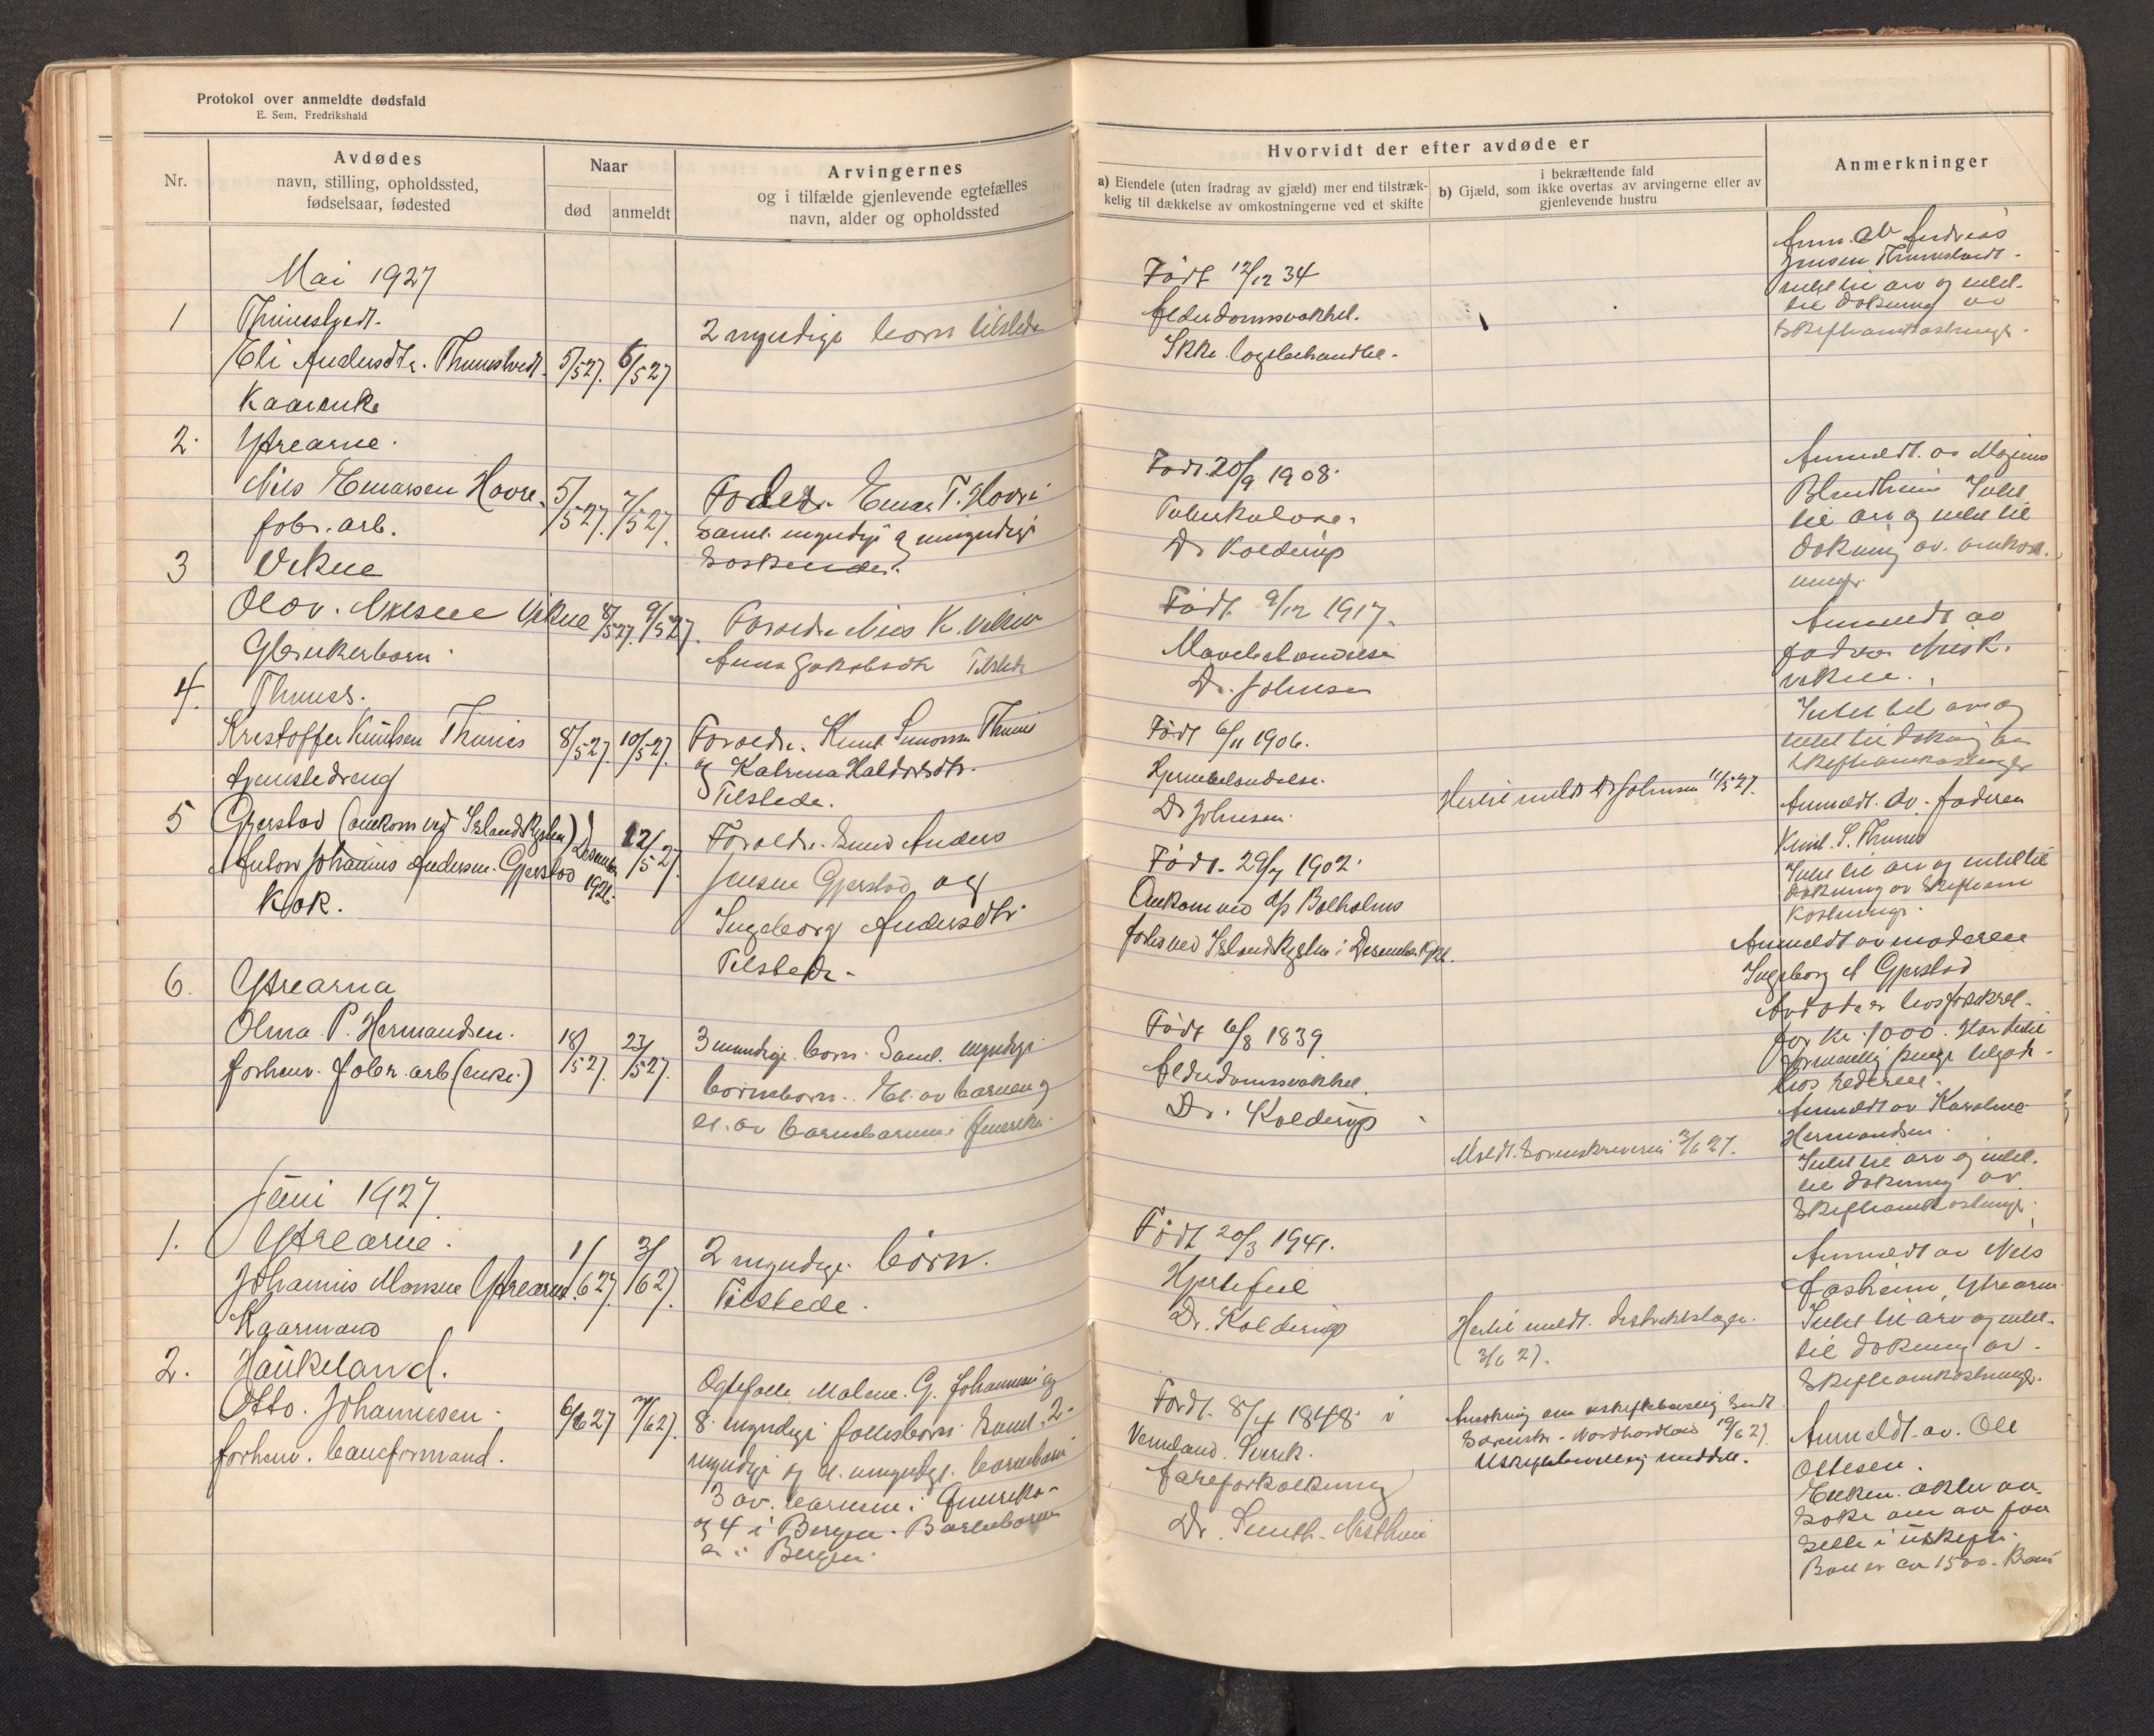 Protokol over anmeldte dødsfald
E. Sem, Fredrikshald
Nr.
Avdødes
navn, stilling, opholdssted,
fødselsaar, fødested
Naar
død
anmeldt
Arvingernes
og i tilfælde gjenlevende egtefælles
navn, alder og opholdssted
Mai 1927
1
Eli Andersdtr. 5/5 27. 6/5 27
2 myndige born tilstede
Kaarenke
2. Ytrearne.
Nils Hovre. 5/5 27. 7/5 27.
fabr. arb.
samt myndige og umyndige
søskende.
3
8/5 27. 9/5 27.
Foreldre Nils K.
Anna Jakobsdtr Tilstede
4. Thunes.
Kristoffer Knutsen Thunes 8/5 27. 10/5 27.
Foreldre. Knut Thunes
og Katrina
tjenestedreng
Tilstede.
5 Gjerstad (omkom ved Islandskysten)
Anton Johannes Andersen Gjerstad Desember 1926. 12/5 27.
Kok.
Foreldre. Anders
Jensen Gjerstad og
Ingeborg Andersdtr
Tilstede.
6. Ytrearna
Olina P. Hermandsen. 18/5 27. 23/5 27.
forhenv. fabr. arb (enke)
3 myndige born. Samt myndige
borneborn. El. av barnene og
el. av barnebarnene i Amerika.
Juni 1927.
1. Ytrearne.
Johannis Monsen Ytrearne. 1/6 27. 3/6 27.
Kaarmand
2 myndige børn.
Tilstede.
2. Haukeland.
Otto. Johannesen. 6/6 27 7/6 27.
forhenv. baneformand.
Ogtefolle Malene. G. Johannesen og
8 myndige follesborn samt 2
myndige og el. umyndige barnebarn
3 av. barnene i Amerika
og 4 i Bergen. Barnebarnene
er i Bergen.
Hvorvidt der efter avdøde er
a) Eiendele (uten fradrag av gjæld) mer end tilstræk-
kelig til dækkelse av omkostningerne ved et skifte
i bekræftende fald
b) Gjæld, som ikke overtas av arvingerne eller av
gjenlevende hustru
Anmerkninger
Født 12/12 34
Alderdomssvakhet.
Ikke lægebehandlet.
Anm. av Andreas
Jensen
intet til arv og intet
til dekning av
skifteomkostninger.
Født. 20/9 1908.
Tuberkulose.
Dr Kolderup
Anmeldt av Mogens
Blindheim Intet
til arv og intet til
dekning av. omkost
ninger
Født 9/12 1917.
Dr. Johnsen
Anmeldt av
faderen Nils K.
Intet til arv og
intet til dekning av
skifteomkostninger
Født 6/11 1906.
Hjernebetendelse.
Dr Johnsen.
Hertil meldt Dr Johnsen 11/5 27.
Anmeldt. av. faderen
Knut. S. Thunes
Intet til arv og intet til
dekning av skifteom
kostninger.
Født. 29/7 1902.
Omkom ved
forlis ved Islandskysten i Desember 1926.
Anmeldt av moderen
Ingeborg A Gjerstad
Avdøde er livsforsikret.
for kr. 1000. Har
formentlig penge tilgode
hos rederiet.
Født 6/8 1839.
Alderdomssvakhet.
Dr. Kolderup
Meldt. Sorenskriveren 2/6 27.
Anmeldt av Karoline
Hermandsen.
Intet til arv og intet
til dekning av
Skifteomkostninger.
Født 20/3 1941.
Hjertefeil
Dr. Kolderup
Hertil meldt. distriktslægen.
3/6 27.
Anmeldt av Nils
Aasheim, Ytrearne
Intet til arv og intet
til dekning av
Skifteomkostninger.
Født. 8/4 1848 i
Vermland. Sverk.
Aareforkalkning
Dr. Smith-
Ansøkning om uskiftebevilling sendt
Sorenskr. Nordhordland 19/6 27.
Uskiftebevilling meddelt.
Anmeldt. av. Ole
Ottesen.
Enken akter aa
søke om aa faa
sitte i uskifte.
Boet er ca 1500 Kroner